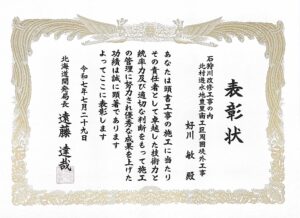 表彰状
石狩川改修工事の内
北村遊水地豊里南工区周囲堤外工事
好川 敏 殿
あなたは頭書工事の施工に当たり
その責任者として卓越した技術力と
統率力及び適切な判断をもって施工
の管理に努力され優秀な成果を上げた
功績は誠に顕著であります
よってここに表彰します
令和七年七月二十九日
北海道開発局長 遠藤達哉